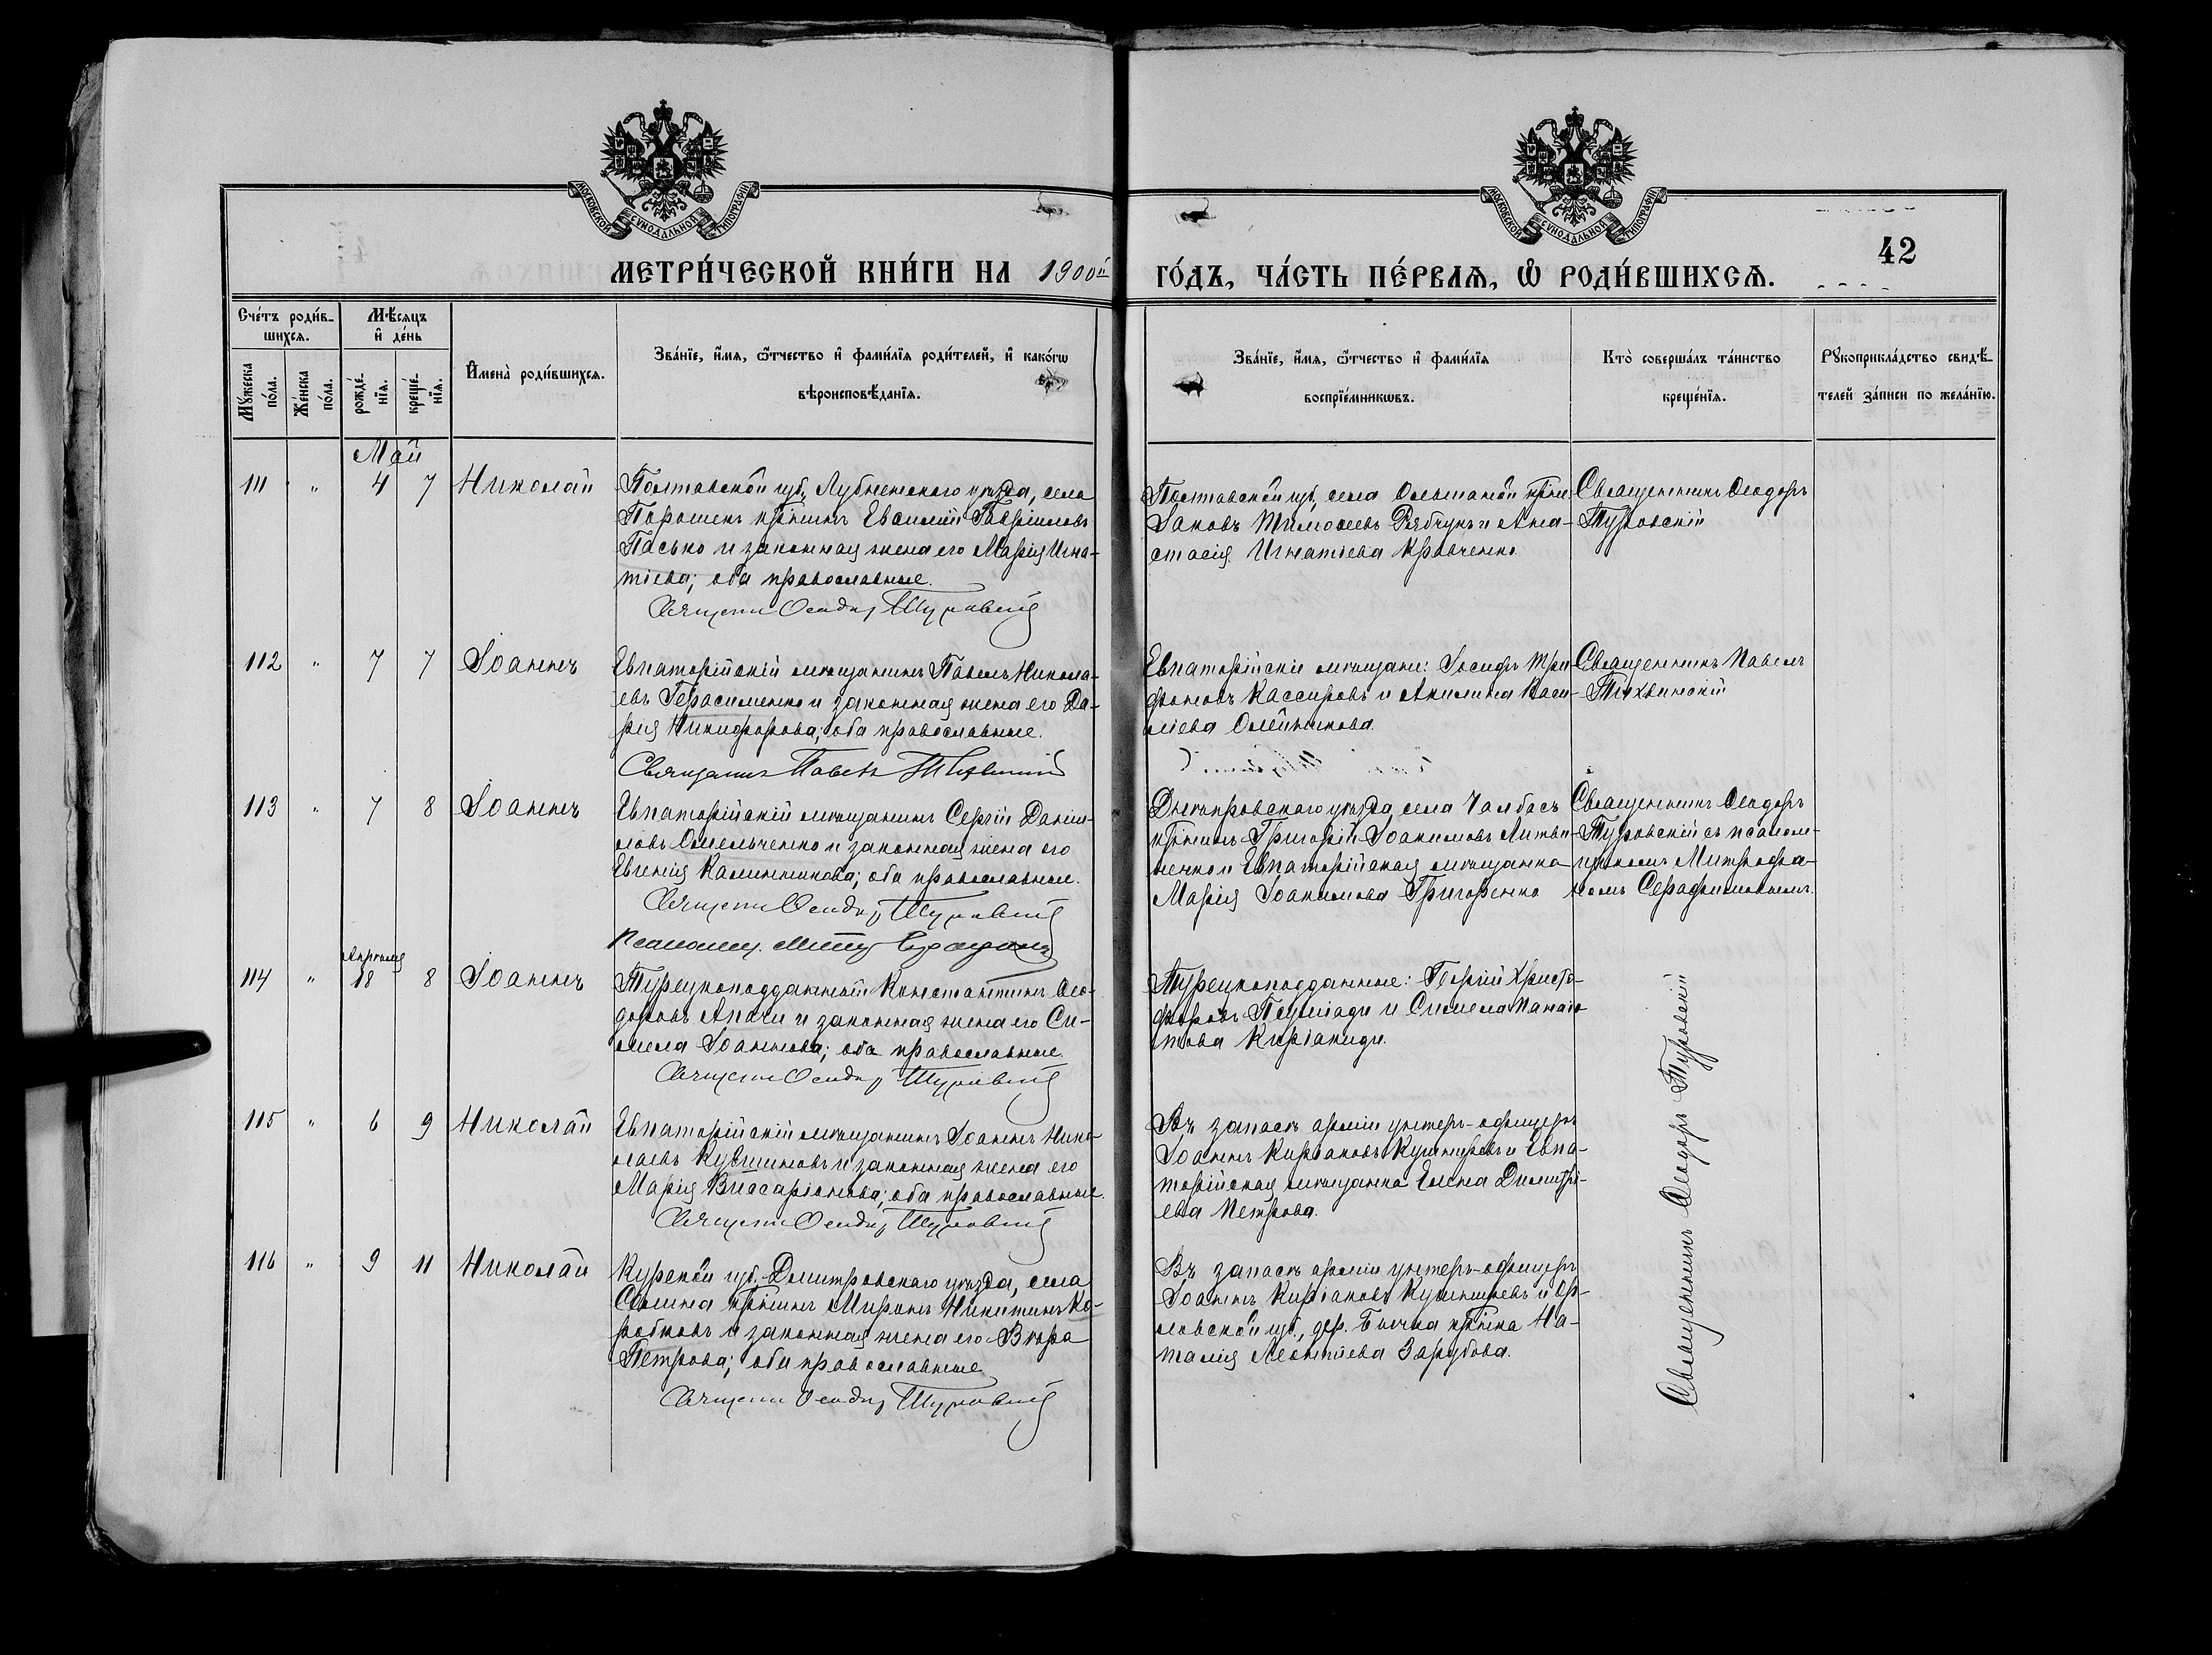 МОСКОВСКОЙ СѴНОДАЛЬНОЙ ТИПОГРАФІИ
МОСКОВСКОЙ СѴНОДАЛЬНОЙ ТИПОГРАФІИ
42
МЕТРИ́ЧЕСКОЙ КНИ́ГИ НА 1900й
ГО́ДЪ, ЧА́СТЬ ПЕ́РВАѦ, Ѡ҆ РОДИ́ВШИХСѦ.
Сче́тъ роди́в-
шихсѧ.
Мѣ́сѧцъ
и҆ де́нь
Мꙋ́жеска
по́ла.
Же́нска
по́ла.
рожде́-
нїѧ.
креще́-
нїѧ.
И҆мена̀ роди́вшихсѧ.
Зва́нїе, и҆́мѧ, ѻ҆́тчество и҆ фами́лїѧ роди́телей, и҆ како́гѡ
вѣроисповѣ́данїѧ.
Зва́нїе, и҆́мѧ, ѻ҆́тчество и҆ фами́лїѧ
воспрїе́мникѡвъ.
Кто̀ соверша́лъ та́инство
креще́нїѧ.
Рꙋкоприкла́дство свидѣ́-
телей за́писи по жела́нїю.
Май
111 " 4 7 Николай
Полтавской губ. Лубненского уѣзда, села
Порошенъ кр-нинъ Евсилий Гавріиловъ
Пасько и законная жена его Марія Игна-
тіева; оба православные.
Священн Ѳеодор Туровскій
Полтавской губ. села Ольшаной кр-не
Іаковъ Тимоѳеевъ Рябчунъ и Ана-
стасія Игнатіева Кравченко
Священникъ Ѳеодоръ
Туровскій
112 " 7 7 Іоаннъ
Евпаторійскій мѣщанинъ Павелъ Никола-
евъ Герасименко и законная жена его Да-
рія Никифорова; оба православные.
Священникъ Павелъ Тихвинскій
Евпаторійскіе мѣщане: Іосифъ Три-
фоновъ Кассировъ и Акилина Васи-
ліева Олейникова.
Священникъ Павелъ
Тихвинскій
113 " 7 8 Іоаннъ
Евпаторійскій мѣщанинъ Сергій Даніи-
ловъ Омельченко и законная жена его
Евгенія Калинникова; оба православные.
Священн Ѳеодор Туровскій
Псаломщ. Митр Серафимов
Днѣпровскаго уѣзда, села Чалбасъ
кр-нинъ Григорій Іоакимовъ Литви-
ненко и Евпаторійская мѣщанка
Марія Іоакимова Григоренко
Священникъ Ѳеодоръ
Туровскій съ псалом-
щикомъ Митрофа-
номъ Серафимовымъ.
Апрѣля
114 " 18 8 Іоаннъ
Турецкоподданный Константинъ Ѳео-
доровъ Апачи и законная жена его Си-
мела Іоаннова; оба православные
Священн Ѳеодор Туровскій
Турецкоподданные: Георгій Христо-
форовъ и Симела Панаіо-
това Киріакиди.
115 " 6 9 Николай
Евпаторійскій мѣщанинъ Іоаннъ Нико-
лаевъ Кушниковъ и законная жена его
Марія Виссаріонова; оба православные.
Священн Ѳеодор Туровскій
Въ запасѣ арміи унтеръ-офицеръ
Іоаннъ Киріаковъ Кушниревъ и Евпа-
торійская мѣщанка Елена Димитрі-
ева Петрова.
116 " 9 11 Николай
Курской губ. Дмитровскаго уѣзда, села
кр-нинъ Миронъ Никитинъ Ко-
робковъ и законная жена его Вѣра
Петрова; оба православные
Священн Ѳеодор Туровскій
Въ запасѣ арміи унтеръ-офицеръ
Іоаннъ Киріаковъ Кушниревъ и Ор-
ловской губ., дер. Бычка кр-нка На-
талія Леонтіева Зарубова.
Священникъ Ѳеодоръ Туровскій